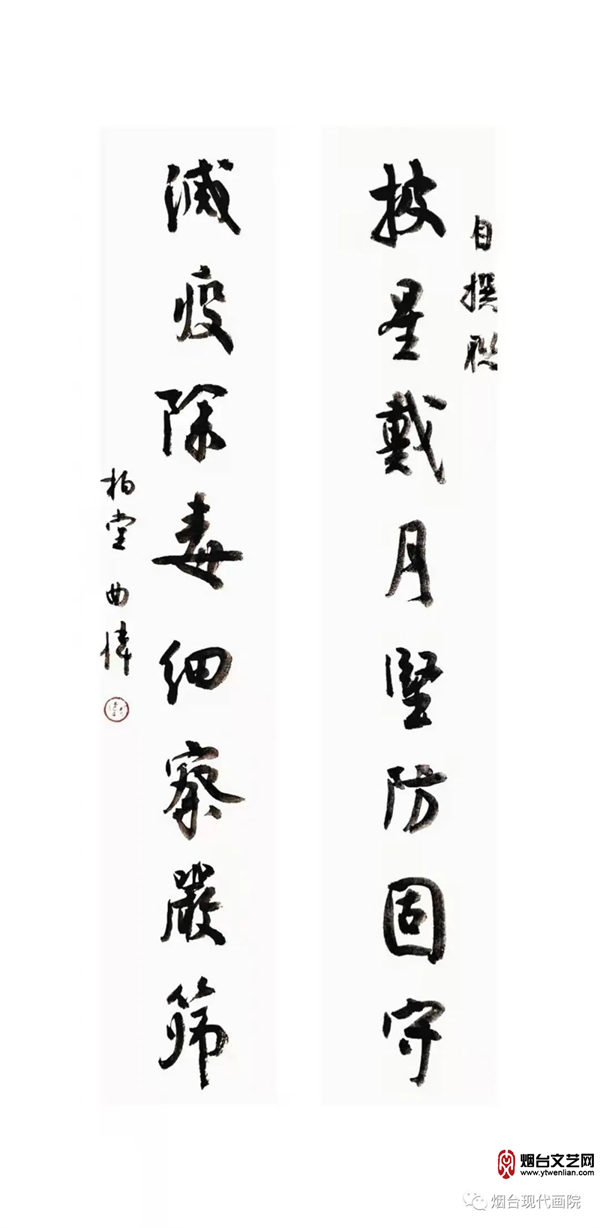 自撰联
披星戴月坚防固守
滅疫除毒细察嚴筛
柏堂 曲伟
烟台文艺网
www.ytwenlian.com
烟台现代画院